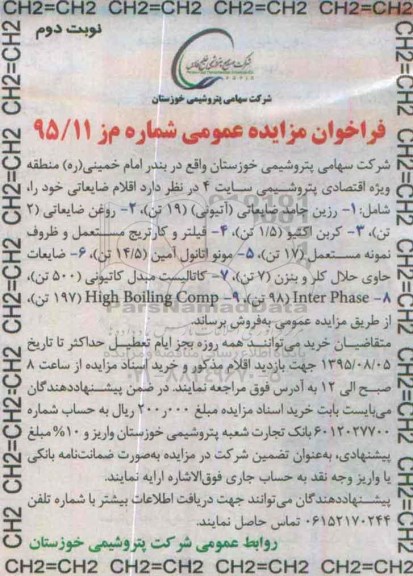 CH2=CH2 CH2=CH2 CH2=CH2 CH2=CH2 CH2=CH2
نوبت دوم
شرکت سهامی پتروشیمی خوزستان
فراخوان مزایده عمومی شماره م‌ز ۹۵/۱۱
شرکت سهامی پتروشیمی خوزستان واقع در بندر امام خمینی(ره) منطقه
ویژه اقتصادی پتروشیمی سایت ۴ در نظر دارد اقلام ضایعاتی خود را،
شامل: ۱- رزین جامد ضایعاتی (آتیونی) (۱۹ تن)، ۲- روغن ضایعاتی (۲
تن)، ۳- کربن اکتیو (۱/۵ تن)، ۴- فیلتر و کارتریج مستعمل و ظروف
نمونه مستعمل (۱۷ تن)، ۵- مونو اتانول آمین (۱۴/۵ تن)، ۶- ضایعات
حاوی حلال کلر و بنزن (۷ تن)، ۷- کاتالیست مبدل کاتیونی (۵۰۰ تن)،
۸- Inter Phase (۹۸ تن)، ۹- High Boiling Comp (۱۹۷ تن)،
از طریق مزایده عمومی به‌فروش برساند.
متقاضیان خرید می‌توانند همه روزه بجز ایام تعطیل حداکثر تا تاریخ
۱۳۹۵/۰۸/۰۵ جهت بازدید اقلام مذکور و خرید اسناد مزایده از ساعت ۸
صبح الی ۱۲ به آدرس فوق مراجعه نمایند. در ضمن پیشنهاددهندگان
می‌بایست بابت خرید اسناد مزایده مبلغ ۲۰۰٫۰۰۰ ریال به حساب شماره
۶۰۱۲۰۲۷۷۰۰ بانک تجارت شعبه پتروشیمی خوزستان واریز و ۱۰% مبلغ
پیشنهادی، به‌عنوان تضمین شرکت در مزایده به‌صورت ضمانت‌نامه بانکی
یا واریز وجه نقد به حساب جاری فوق‌الاشاره ارایه نمایند.
پیشنهاددهندگان می‌توانند جهت دریافت اطلاعات بیشتر با شماره تلفن
۰۶۱۵۲۱۷۰۲۴۴ تماس حاصل نمایند.
روابط عمومی شرکت پتروشیمی خوزستان
CH2=CH2 CH2=CH2 CH2=CH2 CH2=CH2 CH2=CH2